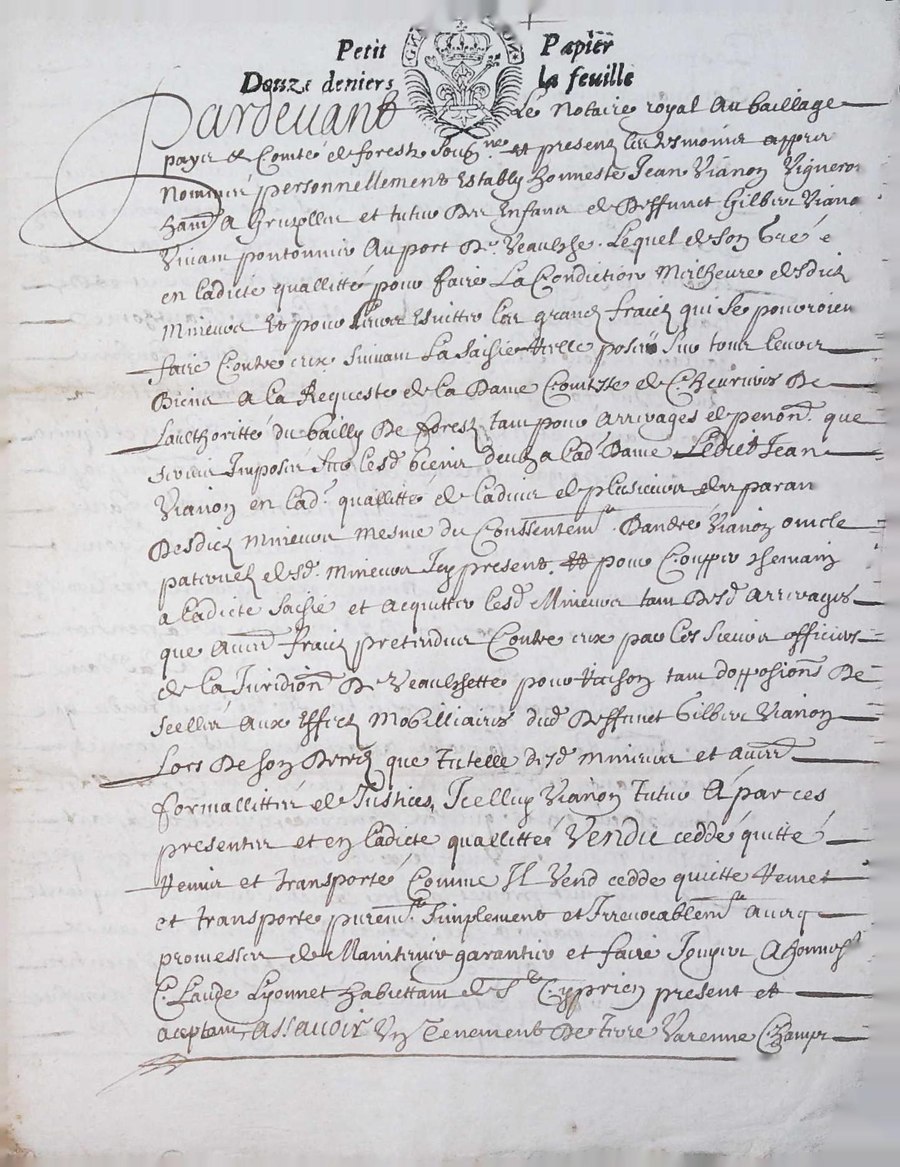 Petit Papier
Douze deniers la feuille
Pardevant Le Notaire royal au bailliage
pays et Comté de forestz soubzne et presenz les tesmoins appres
nommés personnellement estably honneste Jean Vianon Vigneron
habt a et tuteur des enfans de deffunct Gilbert Viano
Vivant pontonnier Au port de Veauche. Lequel de son Gré e
en ladicte quallitté pour faire La Condiction Meilheure desdictz
Mineurs et pour esvitter les grandz fraictz qui se pouroient
faire Contre eux suivant La saisie reelle posée sur tous leurs
Biens a la Requeste de la Dame Comtesse de De
Laulthoritté du bailly De forestz tant pour Arrivages et penon. que
Imposés sur lesd. biens deubz a lad. Dame Ledict Jean
Vianon en lad. quallitté de ladvis de plusieurs des paran
Desdictz Mineurs mesme du Conssentemt. Dandré Vianon oncle
paternel desd. Mineurs Icy present. pour Coupper chemain
a ladicte saisie et acquitter lesd. Mineurs tant desd. Arrivages
que aultres fraictz pretendus Contre eux par les sieurs officiers
de la Juridion. De Veauchette pour raison tant dopposions. De
Scellés aux effectz Mobilliaires dud. Deffunct Gilbert Vianon
Lors De son Decedz que tutelle desd. mineurs et aultres
formallittés de Justices, Icelluy Vianon tuteur A par ces
presentes et en ladicte quallitté Vendu ceddé quitté
remis et transporté Comme Il Vend cedde quitte remet
et transporte puremt. simplement et Irrevocablemt. avecq
promesses de Maintenir garantir et faire Jouyr A honneste
Claude Lyonnet habittant de St. Cyprien present et
aceptant assavoir Un Tenement De terre Varenne Champs